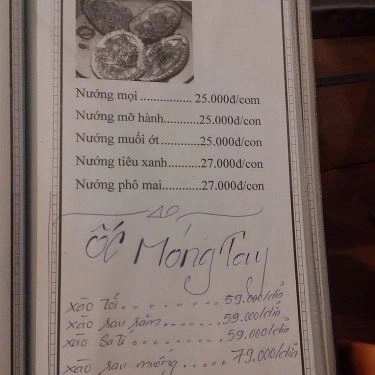 Nướng mọi ................ 25.000đ/com
Nướng mỡ hành...........25.000đ/con
Nướng muối ớt ............25.000đ/con
Nướng tiêu xanh..........27.000đ/con
Nướng phô mai............27.000đ/con
Ốc Móng Tay
xào tỏi.......... 59.000/dĩa
xào rau răm........ 59.000/dĩa
xào Sa tế ......... 59.000/dĩa
xào rau muống ..... 79.000/dĩa